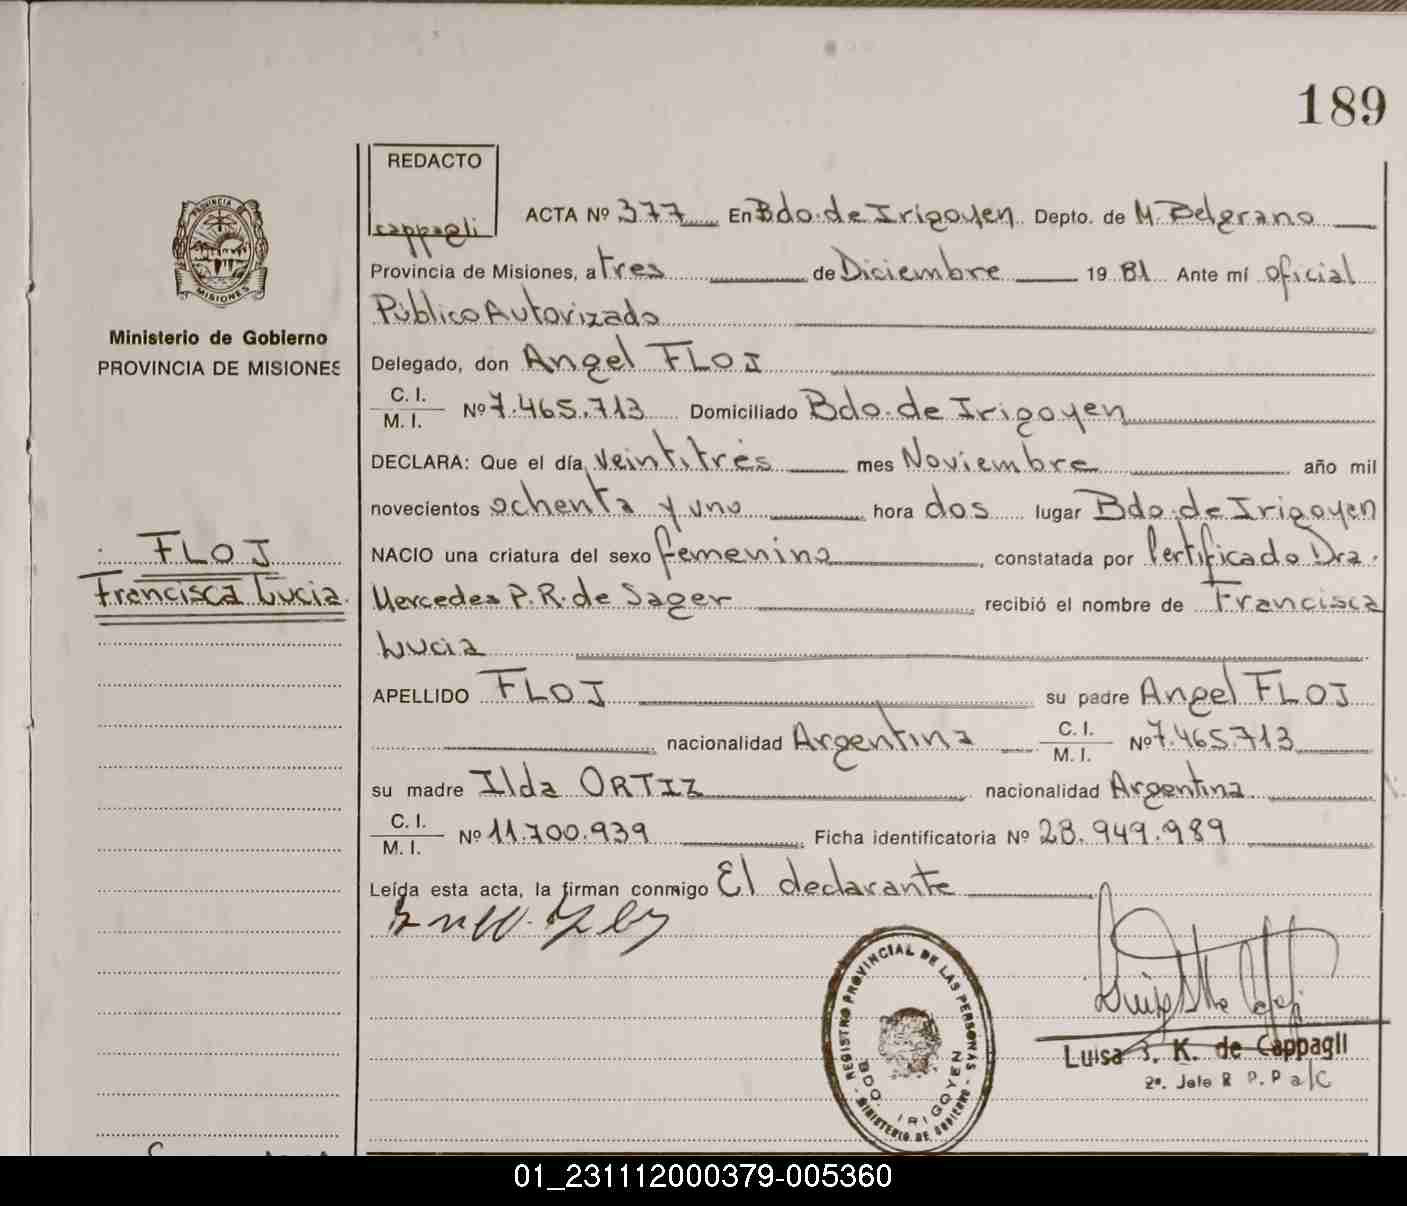 189
REDACTO
cappagli
ACTA Nº 377 En Bdo. de Irigoyen Depto. de M. Belgrano
Provincia de Misiones, a tres de Diciembre 19 81 Ante mí oficial
Público Autorizado
Delegado, don Angel FLOJ
C. I.
M. I. Nº 7.465.713 Domiciliado Bdo. de Irigoyen
DECLARA: Que el día veintitrés mes Noviembre año mil
novecientos ochenta y uno hora dos lugar Bdo. de Irigoyen
NACIO una criatura del sexo femenino, constatada por Certificado Dra.
Mercedes P. R. de Sager recibió el nombre de Francisca
Lucia
APELLIDO FLOJ su padre Angel FLOJ
nacionalidad Argentina C. I.
M. I. Nº 7.465.713
su madre Ilda ORTIZ nacionalidad Argentina
C. I.
M. I. Nº 11.700.939 Ficha identificatoria Nº 28.949.989
Leída esta acta, la firman conmigo El declarante
PROVINCIA DE
MISIONES
Ministerio de Gobierno
PROVINCIA DE MISIONES
FLOJ
Francisca Lucia
REGISTRO PROVINCIAL DE LAS PERSONAS
BDO. IRIGOYEN
MINISTERIO DE GOBIERNO
Luisa S. K. de Cappagli
2º. Jefe R P. P a/c
01_231112000379-005360